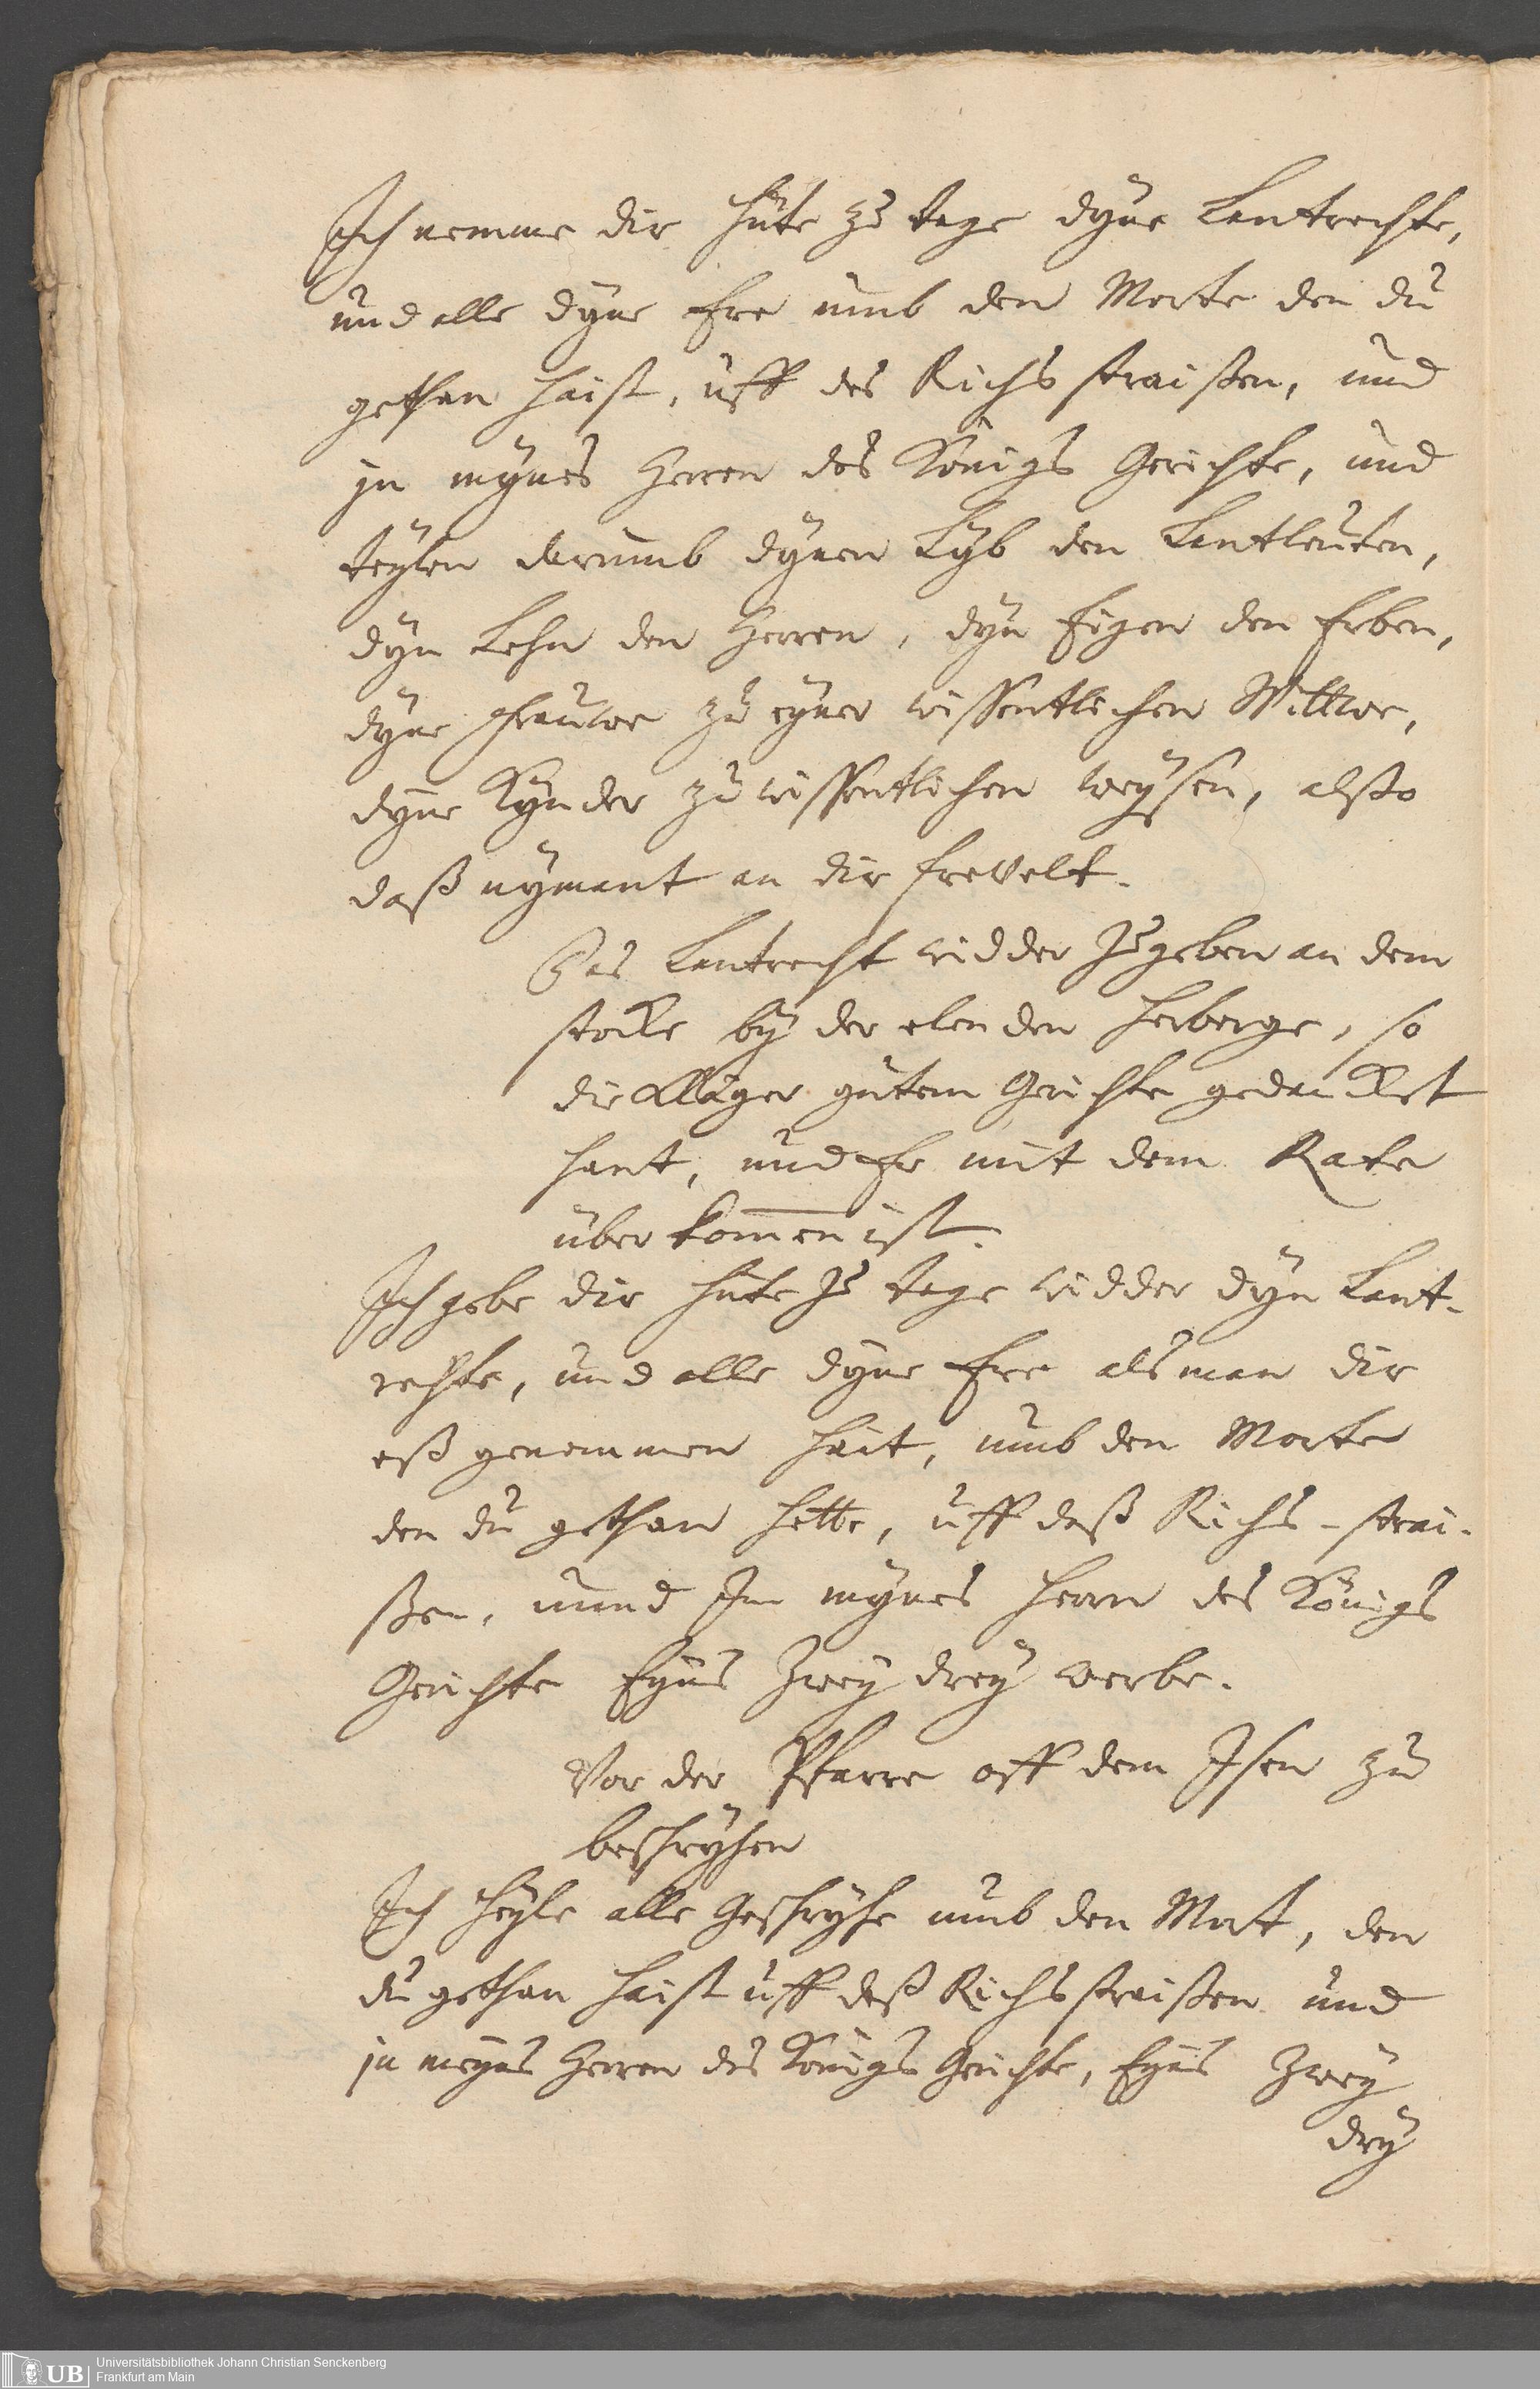 Ich nemme dir hüte zu tage dyne Lantrechte,
und alle dyne Ere umb den Morte den du
gethan haist, uff des Richs straißen, und
jn mynes Herren des Königs Gerichte, und
teylen darumb dynen Lyb den Lantleuten,
dyn Lehn den Herren, dyn Eigen den Erben,
dyne Frauwe zu eyner wissentlichen Wittwe,
dyne Kynder zu wissentlichen weysen, alsso
daß nymant an dir frevelt.
Das Lantrecht widder zugeben an dem
stocke by der elenden Herberge, so
die Kläger gutem Gerichte gedancket
hant, und Er mit dem Rate
überkom̅en ist.
Ich gebe dir hüte zu tage widder dyn Lant-
rechte, und alle dyne Ere als man dir
eß genommen hait, umb den Morte
den du gethan hette, uff deß Richs-strai-
ßen, unnd In mynes Herrn des Königs
Gerichte Eyns zwey drey werbe.
Vor der Pfarre off dem Isen zu
beschryhen
Ich heyle alle Geschryhe umb den Mort, den
du gethan haist uff deß Richsstraißen und
jn meyns Herren des Königs Gerichte, Eyns zwey
drey
UB
Universitätsbibliothek Johann Christian Senckenberg
Frankfurt am Main